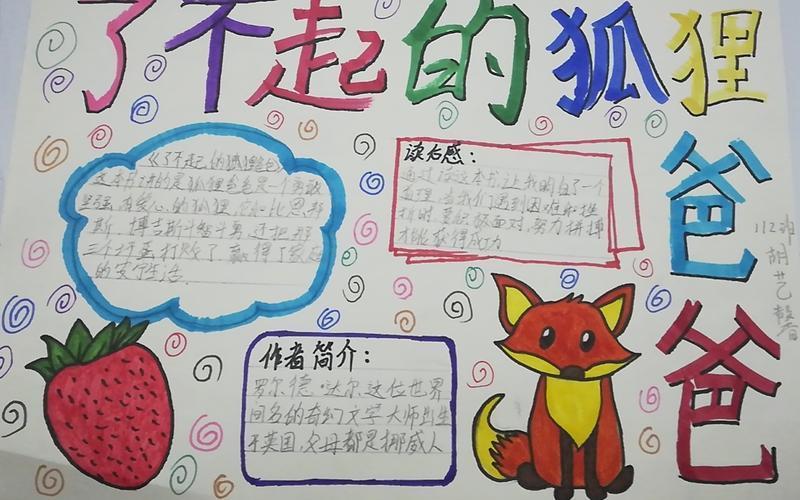 了不起的狐狸
爸
爸
112班
胡艺馨
《了不起的狐狸爸爸》
这本书讲的是狐狸爸爸是一个勇敢
坚强、有爱心的狐狸,它和比恩、邦
斯、博吉斯斗智斗勇,还把那
三个坏蛋打败了,赢得了家庭
的安宁生活.
读后感:
通过读这本书,让我明白了一个
道理,当我们遇到困难和挫
折时,要积极面对,努力拼搏
才能获得成功
作者简介:
罗尔德·达尔这位世界
闻名的奇幻文学大师出生
于英国,父母都是挪威人